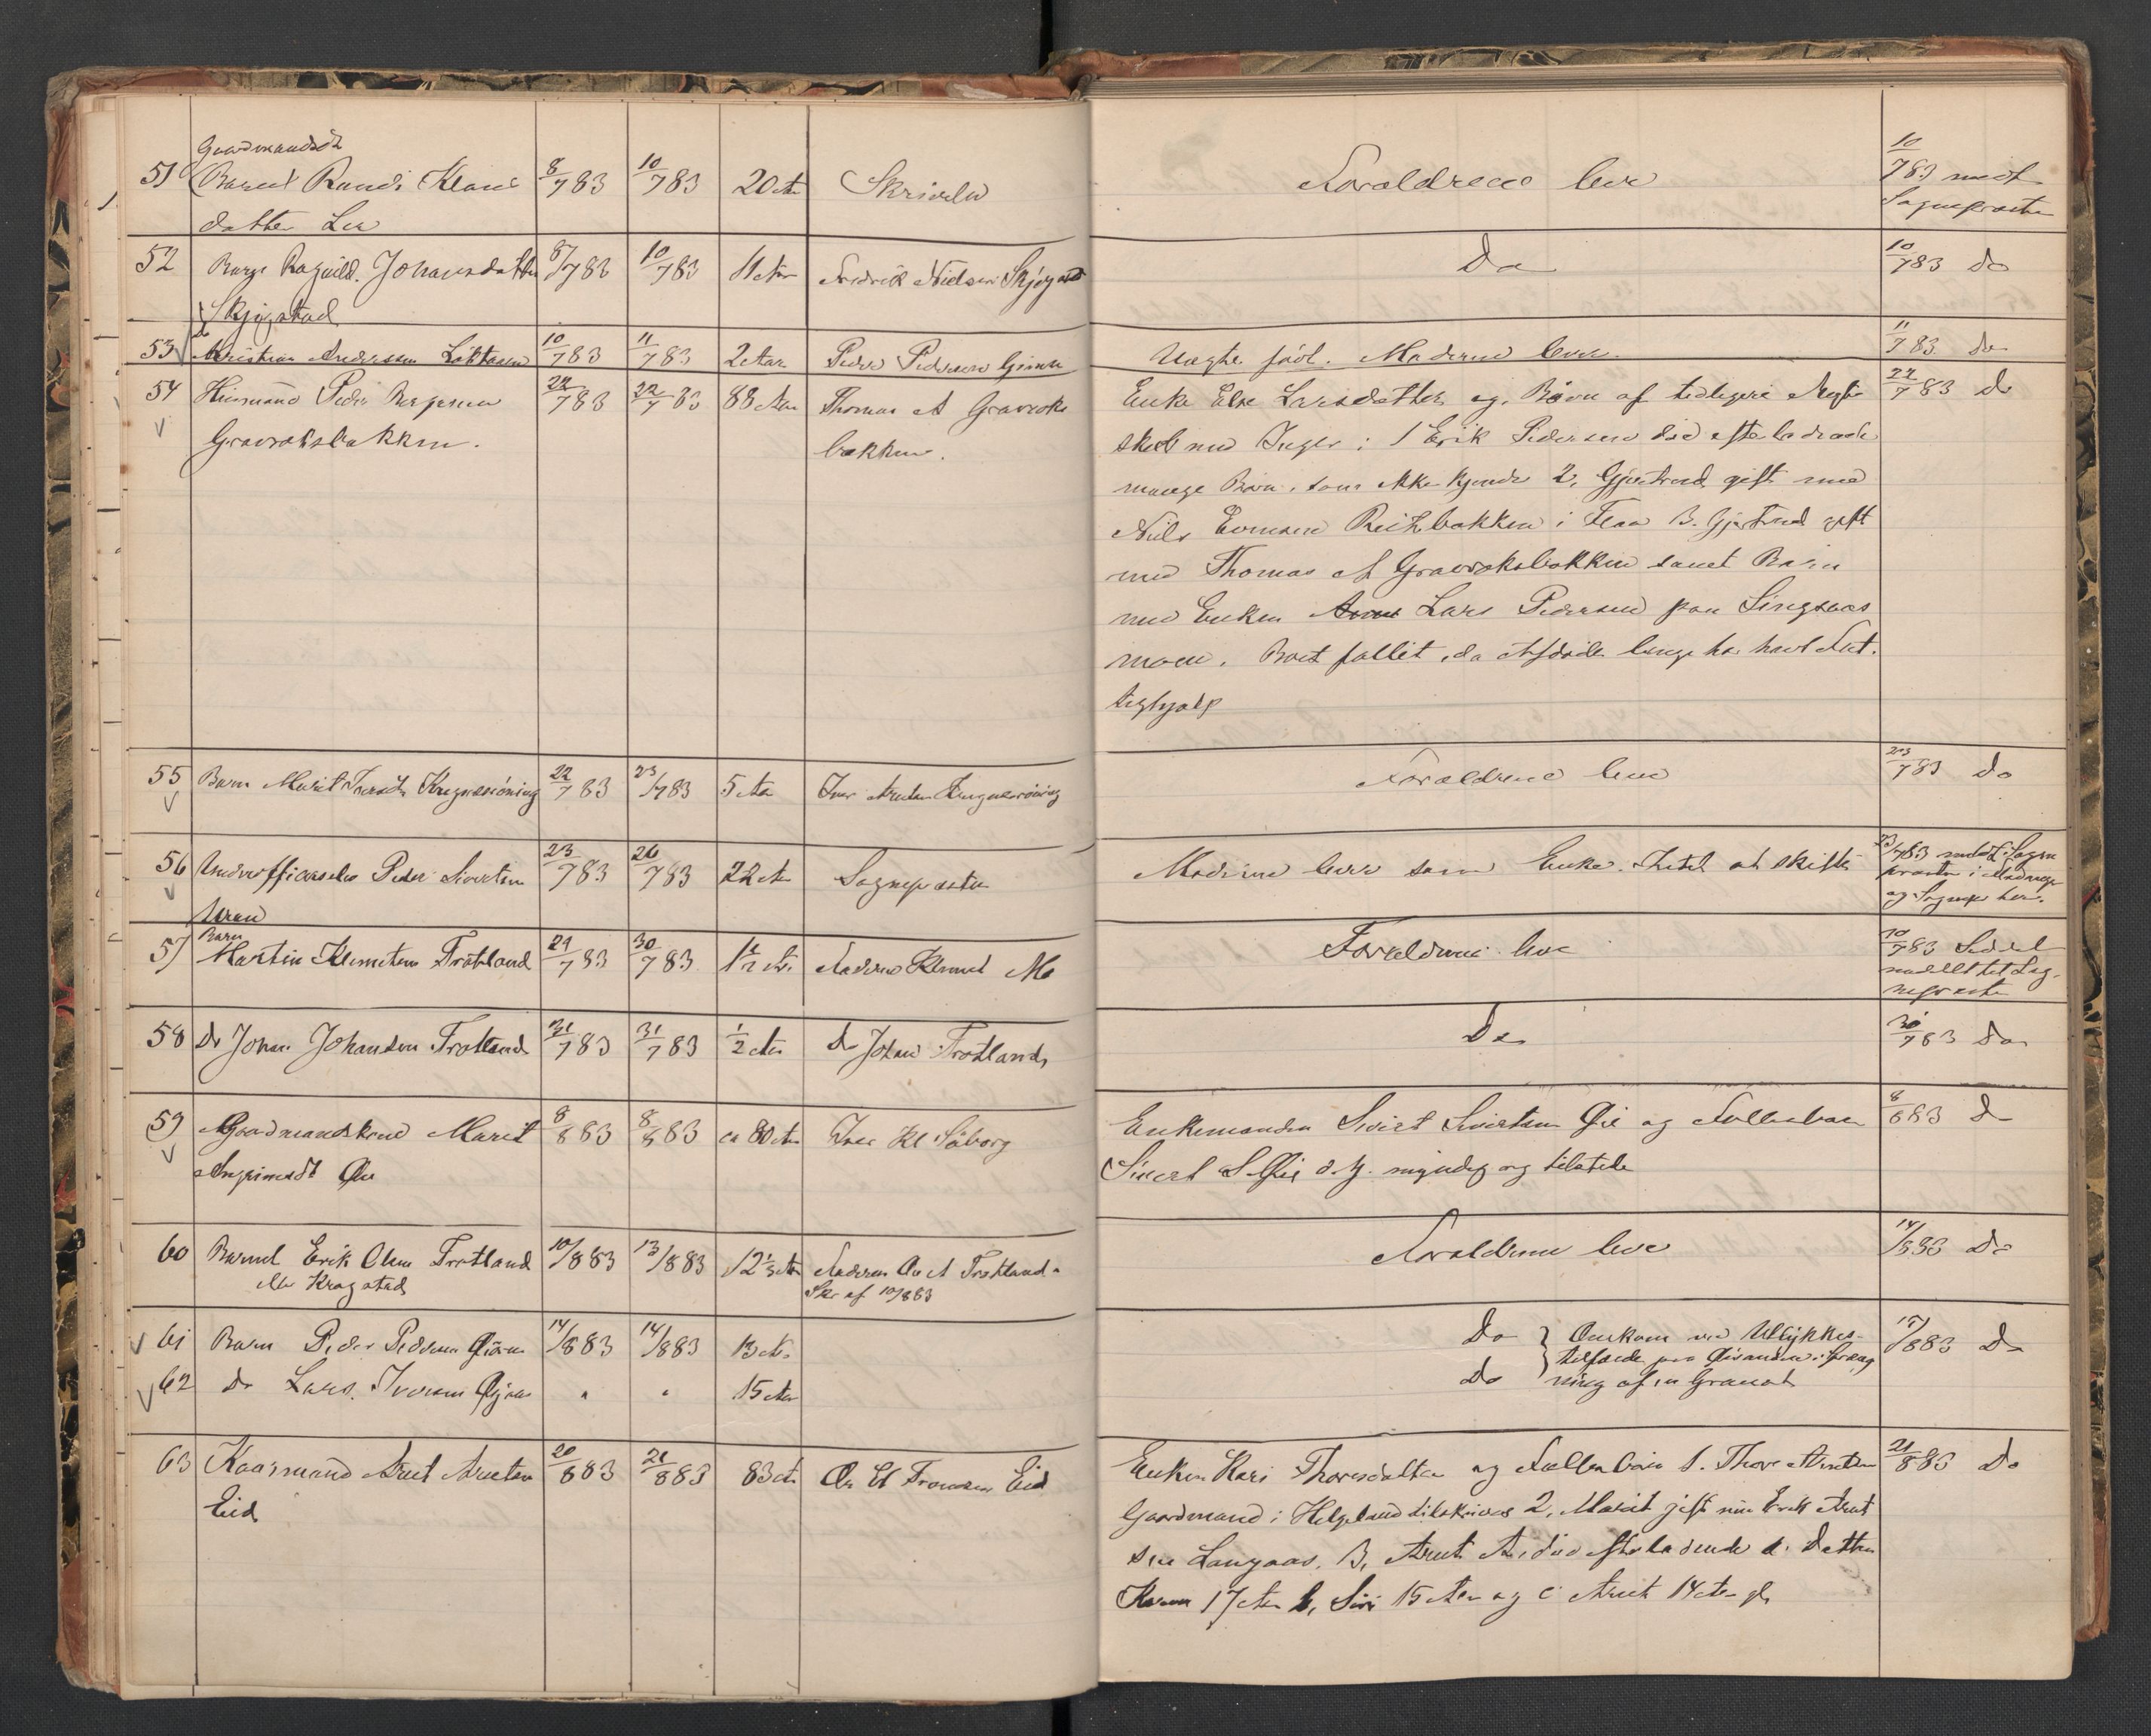 Gaardmandsdt
51 Barnet Randi Klaus 8/7 83 10/7 83 20 Aar Skriveln Forældrene leve 10/7 83 medt
datter Ler Sognepresten
52 Barn Ragnild Johansdatter 8/7 83 10/7 83 11 Aar Fredrik Nielsen Skjøgstad Do 10/7 83 do
Skjøgstad
53 Kristian Anderssen Løkkaun 10/7 83 11/7 83 2 Aar Peder Pedersen Gimse Uægte født. Moderen lever. 11/7 83 do
54 Huusmand Peder Bergersen 22/7 83 22/7 83 88 Aar Thomas A Gravroks Enke Else Larsdatter og Børn af tidligere Ægte 22/7 83 do
Gravroksbakken. bakken. skab med Inger: 1 Erik Pedersen død efterladende
mange Børn, som ikke kjendes 2, Gjertrud gift med
Niels Evensen Reitbakken i Flaa 3. Gjertrud gift
med Thomas A Gravroksbakken samt Barn
med Enken Lars Pedersen paa Singsaas
moen. Boet fallit, da Afdøde længe har havt Fat-
tighjælp
55 Barn Marit Iversdt Krogsæreining 22/7 83 23/7 83 5 Aar Iver Arntsen Forældrene leve 23/7 83 do
56 Underofficerselev Peder Sivertsen 23/7 83 26/7 83 22 Aar Sognepresten Moderen lever som Enke. Intet at skifte 7 83 medt Sogne
Uren presten i
og Sognepr her.
Barn
57 Martin Klemetsen Trotland 29/7 83 30/7 83 1 1/2 Aar Faderen Klemet M Forældrene leve 30/7 83 Seddel
meddelt til Sog-
nepresten
58 Do Johan Johansen Trotland 31/7 83 31/7 83 1/2 Aar do Johan Trotland Do 30/7 83 Do
59 Gaardmandskone Marit 8/8 83 8/8 83 ca 80 Aar Iver Kl Søberg Enkemanden Sivert Sivertsen Øie og Fællesbarn 8/8 83 do
Ingrimsdt Øie Sivert S. Øie d.y. myndig og tilstede
60 Barnet Erik Olsen Trotland 10/8 83 13/8 83 12 1/3 Aar Faderen Ole A Trotland Forældrene leve 14/8 83 Do
Krogstad Skr af 10/8 83
61 Barn Peder Pedersen 14/8 83 14/8 83 13 Aar Do Omkom ved Ulykkes- 17/8 83 Do
tilfælde paa Øisanden i Spræng
62 do Lars Iversen " " 15 Aar Do ning af en Granat
63 Kaarmand Arnt Arntsen 20/8 83 21/8 83 83 Aar Ole El Fransen Eid Enken Kari Thoresdatter og Fællesbørn 1. Thore Arntsen 21/8 83 Do
Eid Gaardmand i Helgeland tilskrives 2, Marit gift med Erik Arnt
sen Langaas. 3, Arnt A. død efterladende a. Datter
Karen 17 Aar b, Siri 15 Aar og c Arnt 14 Aar gl